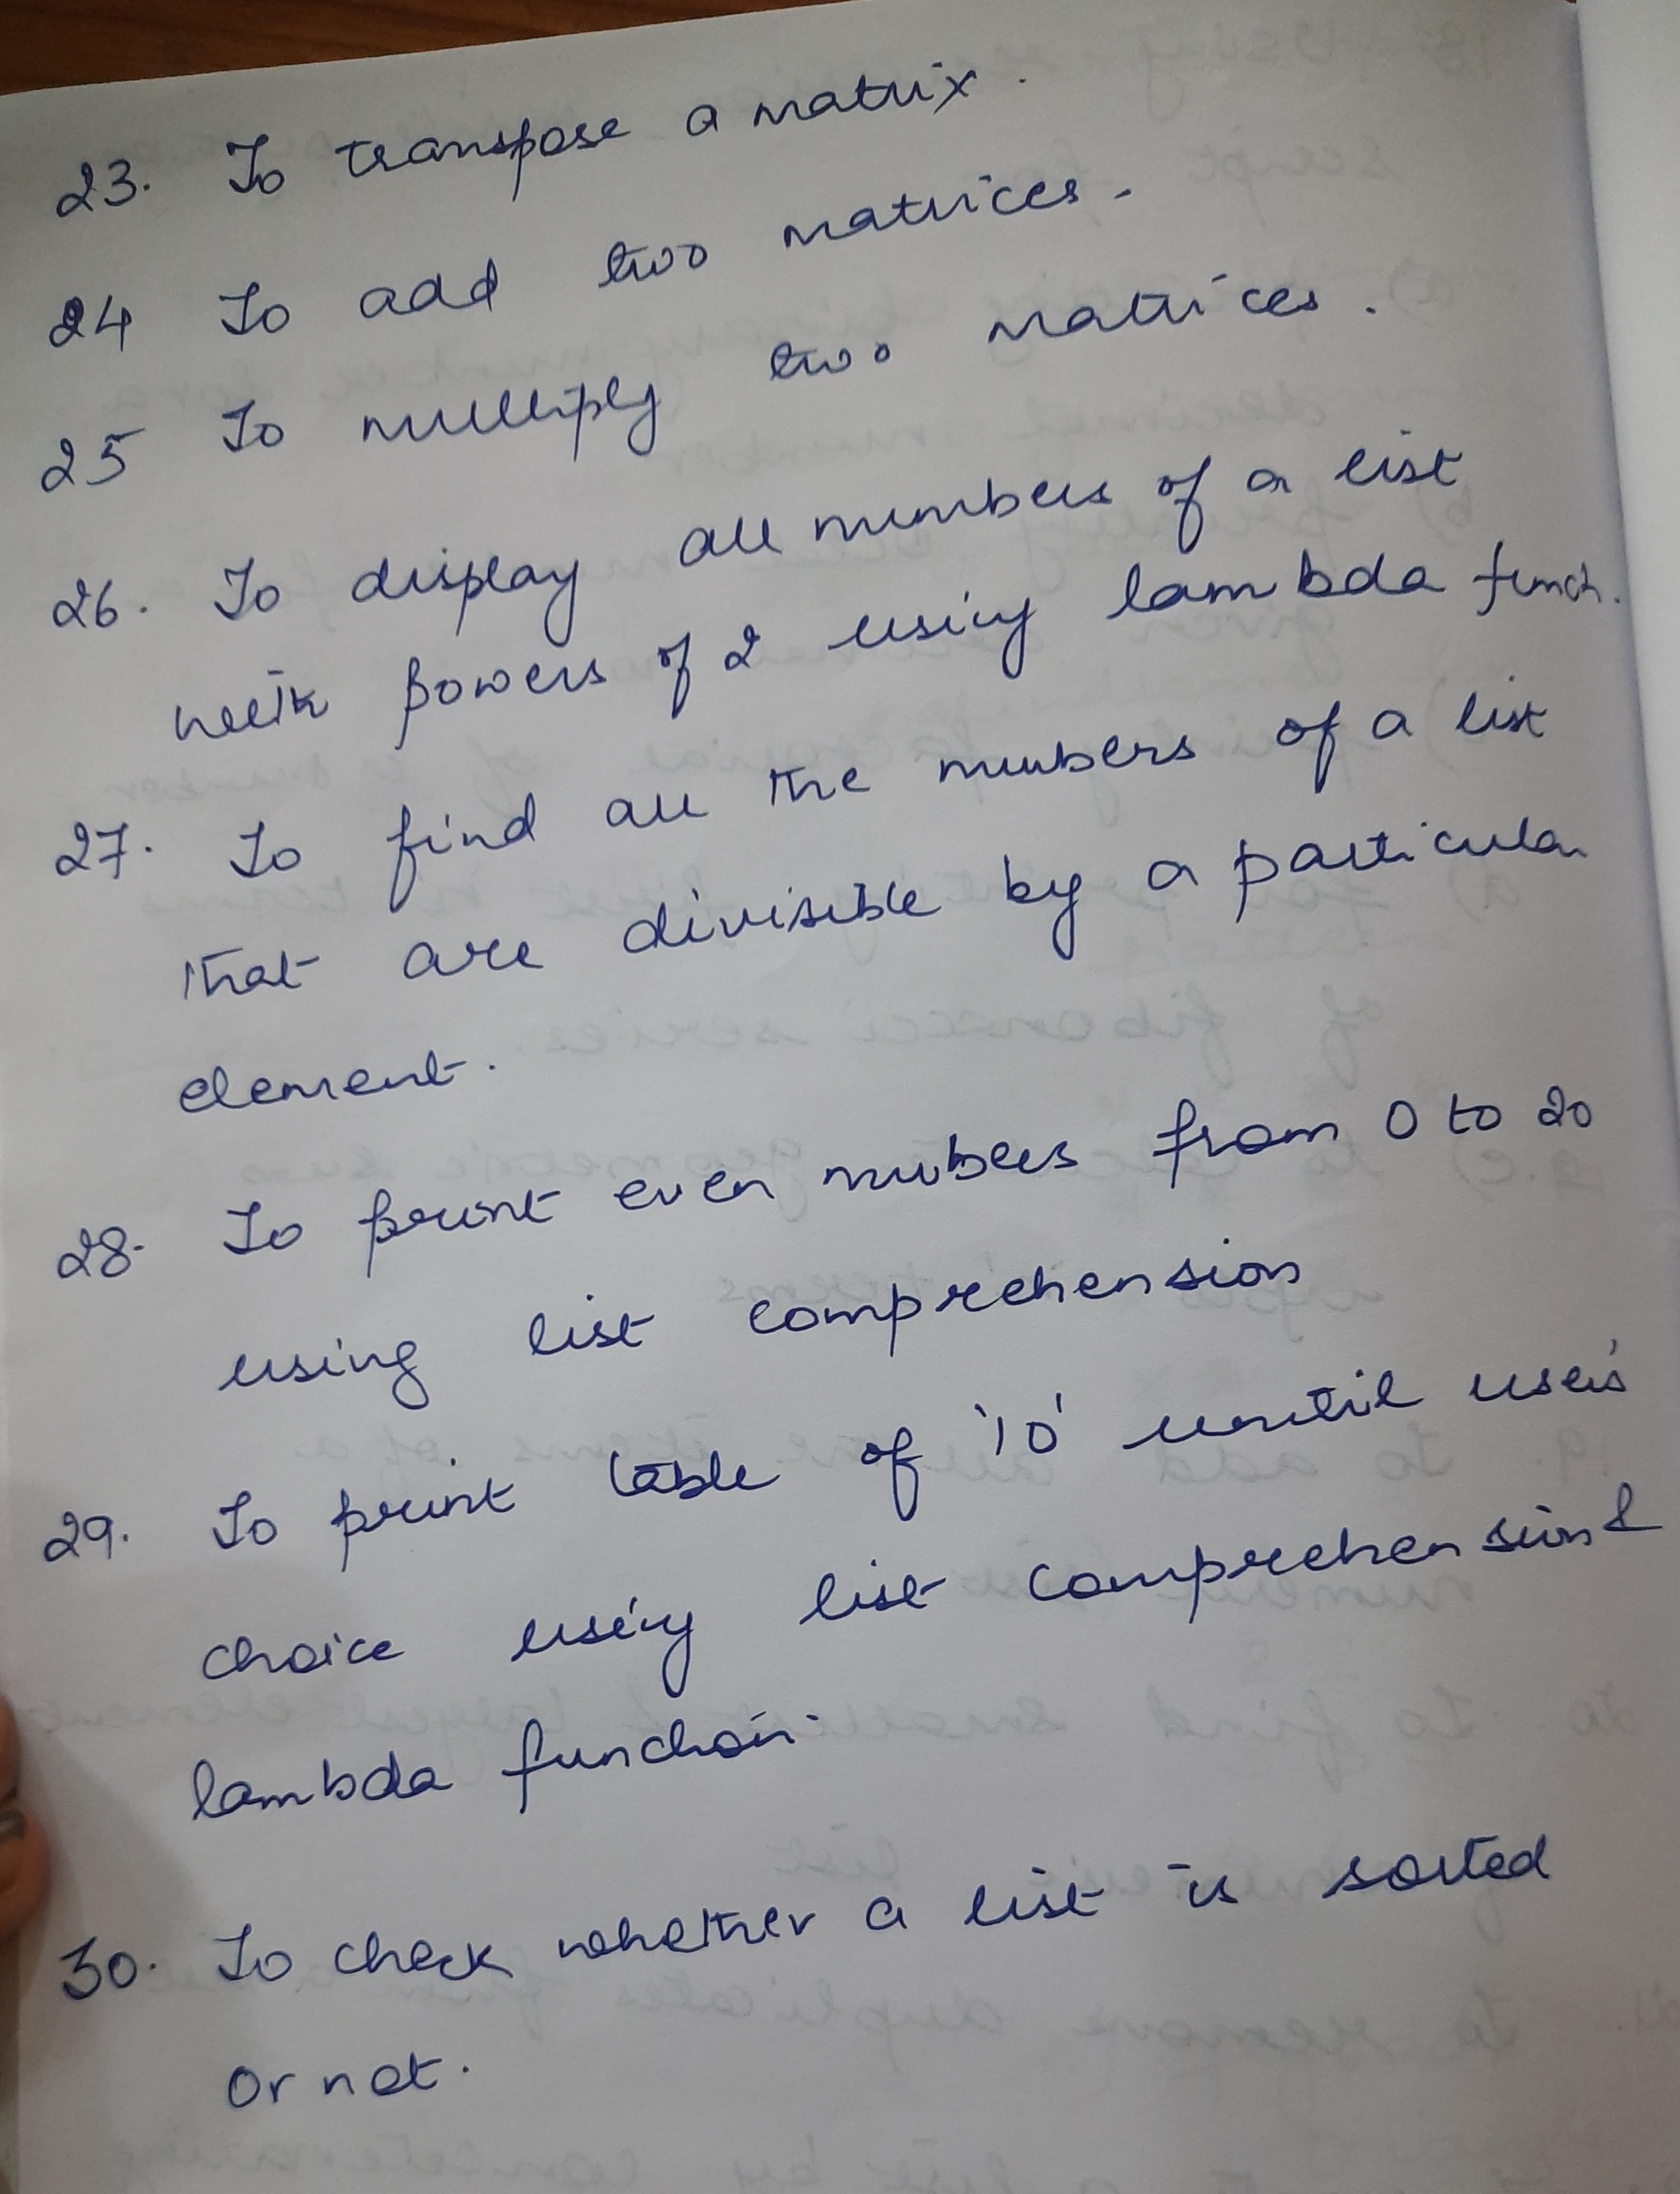 23. To transpose a matrix.
24 To add two matrices.
25 To multiply two matrices.
26. To display all numbers of a list
with powers of 2 using lambda funcn.
27. To find all the numbers of a list
that are divisible by a particular
element.
28. To print even nubers from 0 to 20
using list comprehension
29. To print table of '10' until user's
choice using list comprehension &
lambda function.
30. To check whether a list is sorted
or not.